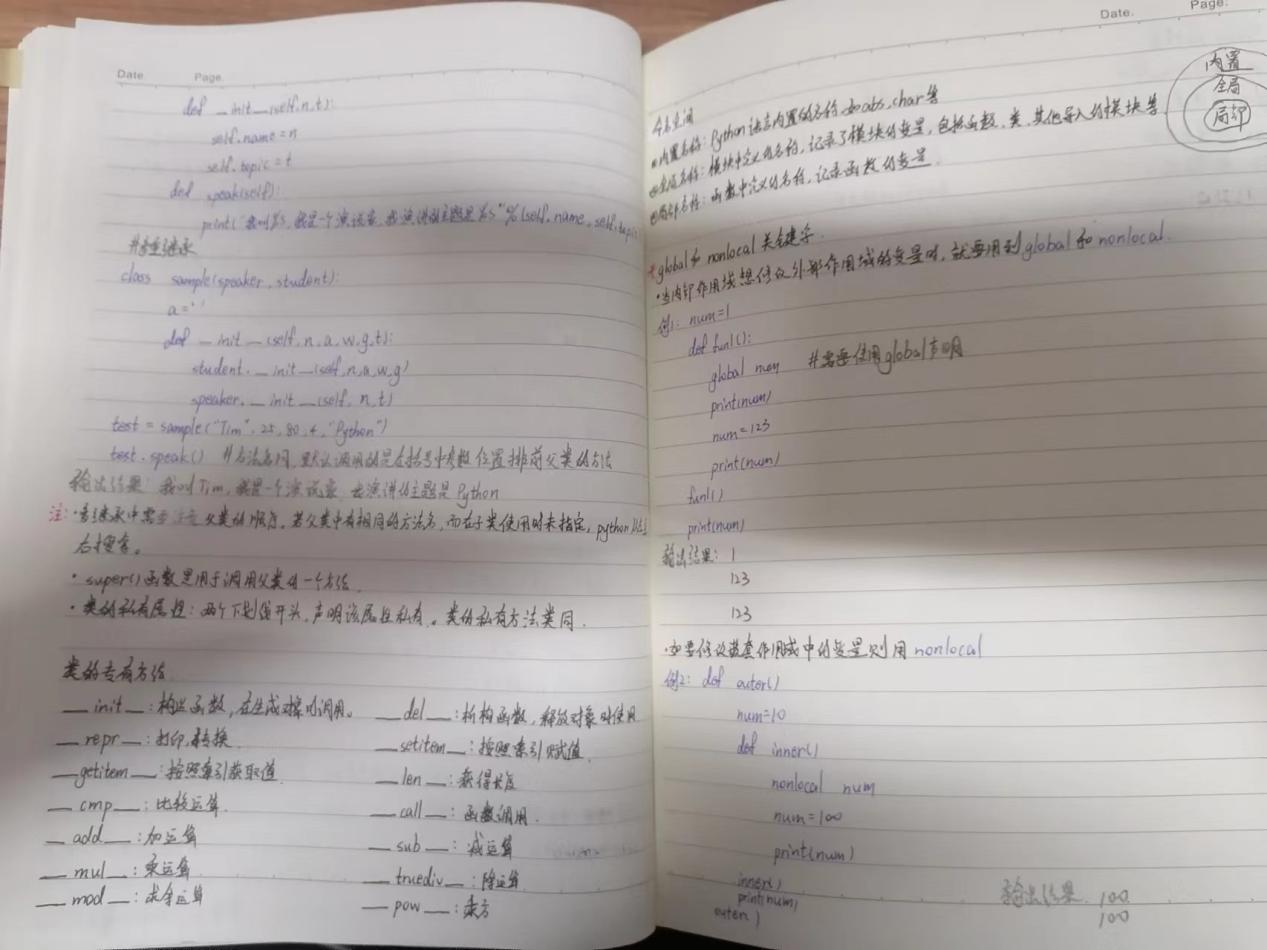 Date Page
def __init__(self,n,t):
self.name=n
self.topic=t
def speak(self):
print("我叫%s,我是一个演说家,我演讲的主题是%s"%(self.name,self.topic
#多重继承
class sample(speaker,student):
a=''
def __init__(self,n,a,w,g,t):
student.__init__(self,n,a,w,g)
speaker.__init__(self,n,t)
test=sample("Tim",25,80,4,"Python")
test.speak() #方法名同,默认调用的是在括号中参数位置排前父类的方法
输出结果:我叫Tim,我是一个演说家,我演讲的主题是Python
注:·多继承中需要注意父类的顺序,若父类中有相同的方法名,而在子类使用时未指定,python从左
右搜索。
·super()函数是用于调用父类的一个方法.
·类的私有属性:两个下划线开头,声明该属性私有。类的私有方法类同.
类的专有方法
__init__:构造函数,在生成对象时调用。 __del__:析构函数,释放对象时使用
__repr__:打印,转换. __setitem__:按照索引赋值.
__getitem__:按照索引获取值. __len__:获得长度
__cmp__:比较运算. __call__:函数调用.
__add__:加运算 __sub__:减运算
__mul__:乘运算 __truediv__:除运算
__mod__:求余运算 __pow__:乘方
Date. Page.
内置
全局
局部
命名空间
内置名称:Python语言内置的名称,如abs,char等
全局名称:模块中定义的名称,记录了模块的变量,包括函数、类、其他导入的模块等
局部名称:函数中定义的名称,记录函数的变量.
*global和nonlocal关键字.
·当内部作用域想修改外部作用域的变量时,就要用到global和nonlocal.
例1: num=1
def fun1():
global num #需要使用global声明
print(num)
num=123
print(num)
fun1()
print(num)
输出结果: 1
123
123
·如要修改嵌套作用域中的变量则用nonlocal
例2: def outer()
num=10
def inner()
nonlocal num
num=100
print(num)
inner()
print(num)
outer()
输出结果. 100
100